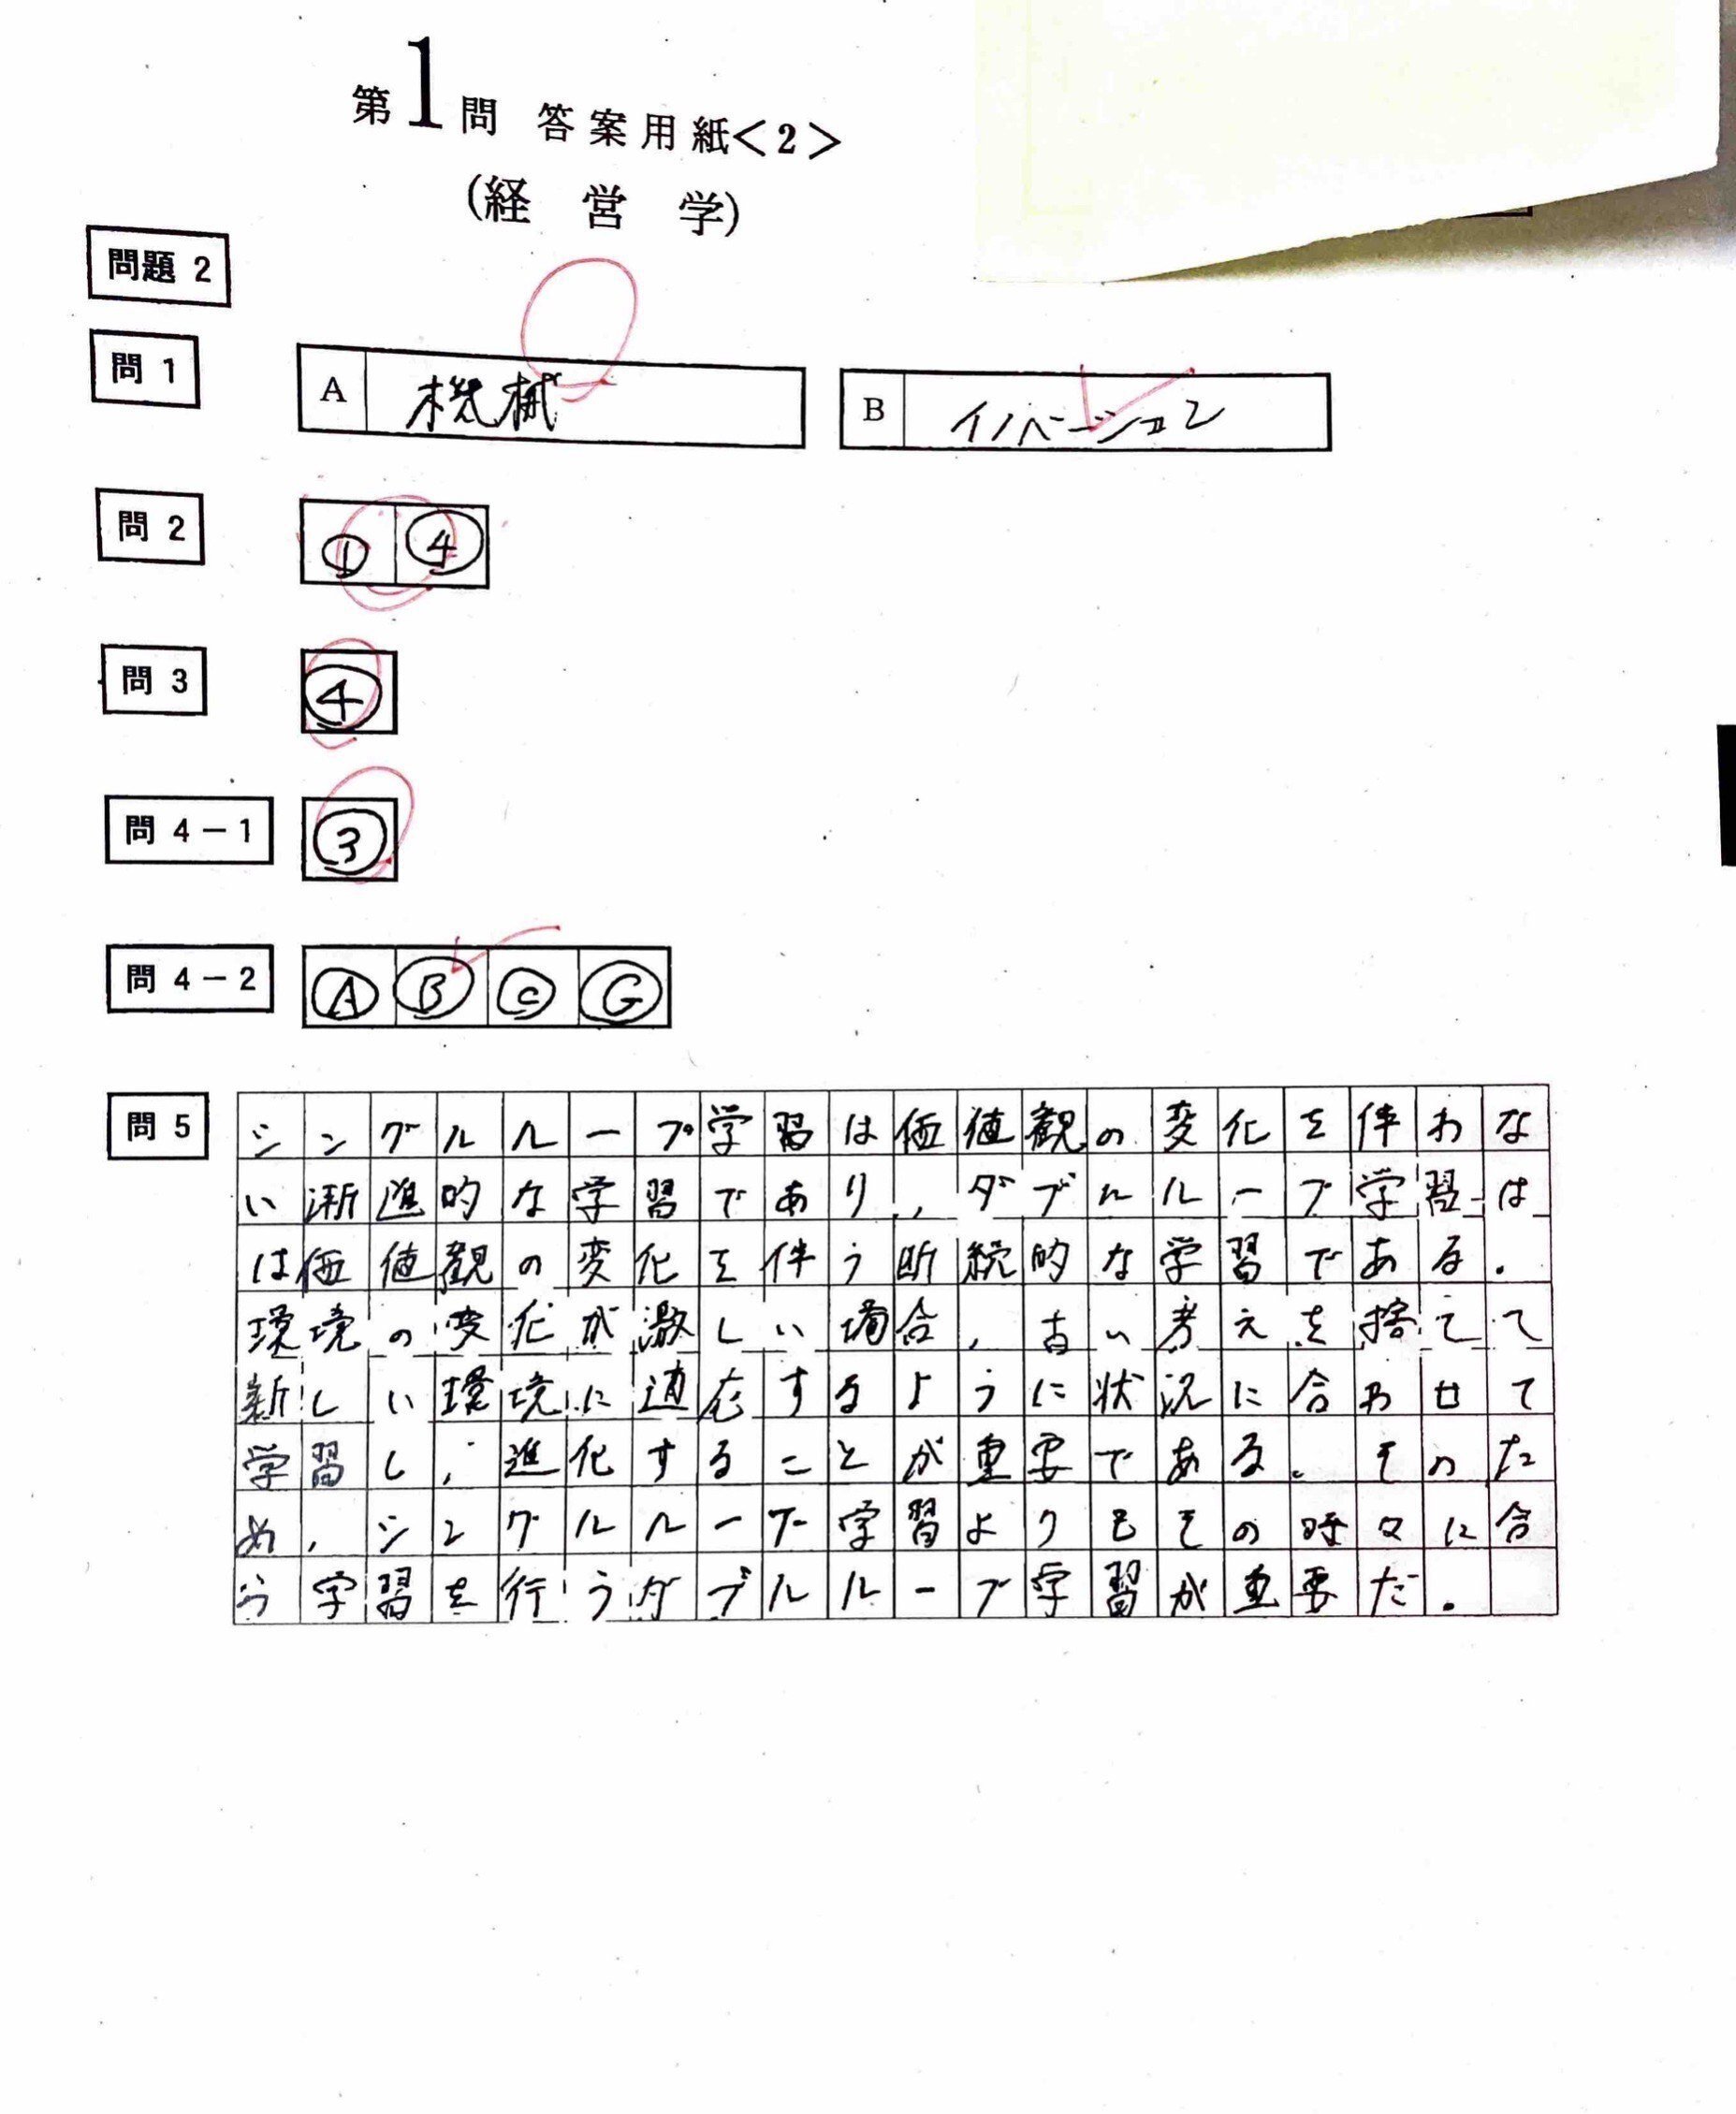 第1問 答案用紙<2>
(経営学)
問題 2
問 1
A 機械
B イノベーション
問 2
① ④
問 3
④
問 4-1
③
問 4-2
Ⓐ Ⓑ Ⓒ Ⓖ
問 5
シングルループ学習は価値観の変化を伴わな
い漸進的な学習であり,ダブルループ学習は
は価値観の変化を伴う断続的な学習である.
環境の変化が激しい場合,古い考えを捨てて
新しい環境に適応するように状況に合わせて
学習し,進化することが重要である。そのた
め,シングルループ学習よりもその時々に合
う学習を行うダブルループ学習が重要だ.